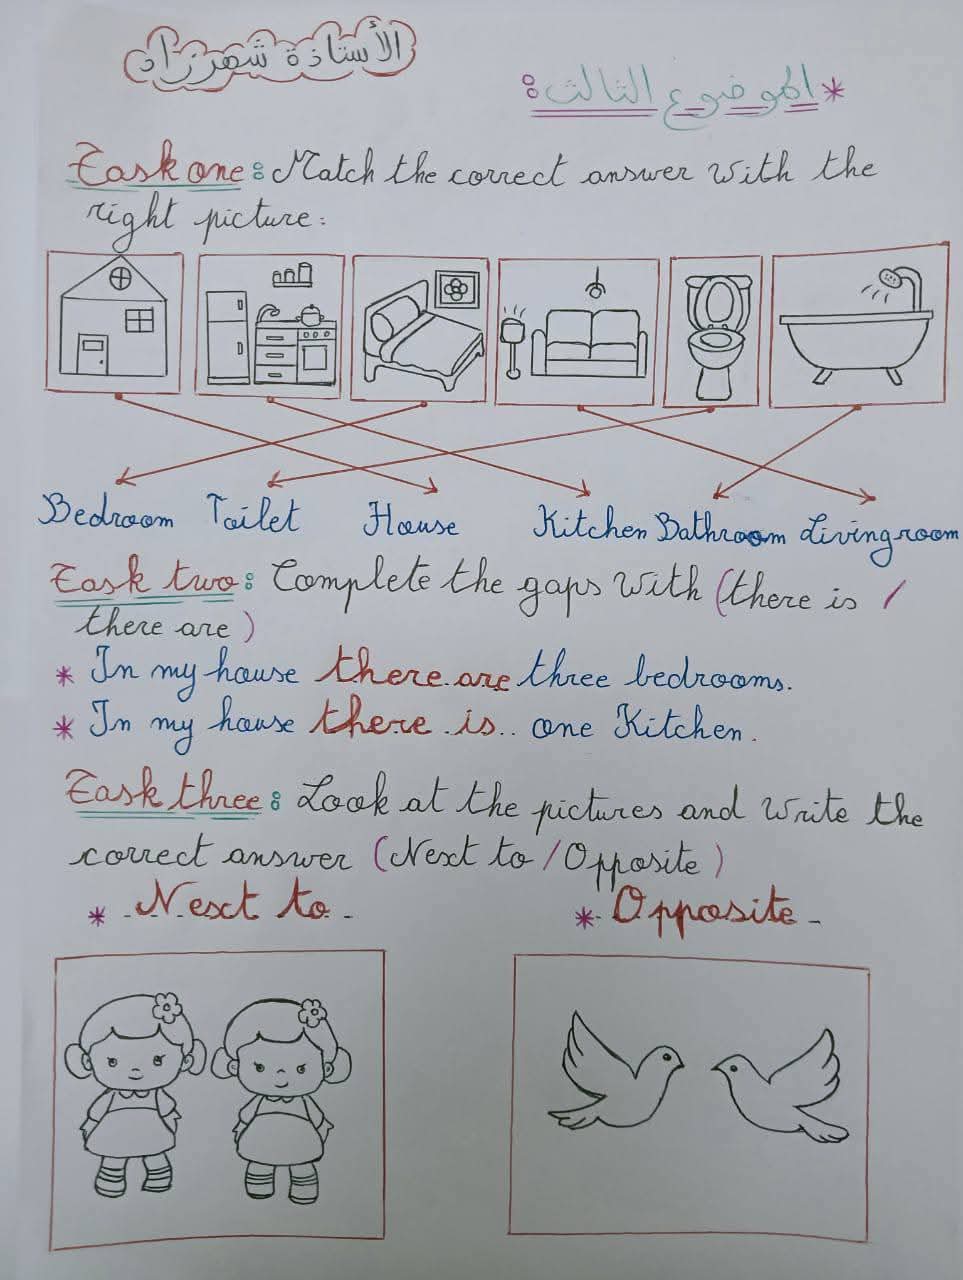 الأستاذة شهرزاد
* الموضوع الثالث:
Task one: Match the correct answer with the
right picture:
Bedroom Toilet House Kitchen Bathroom Livingroom
Task two: Complete the gaps with (there is /
there are)
* In my house there are three bedrooms.
* In my house there is.. one Kitchen.
Task three: Look at the pictures and write the
correct answer (Next to / Opposite)
* - Next to - * - Opposite -